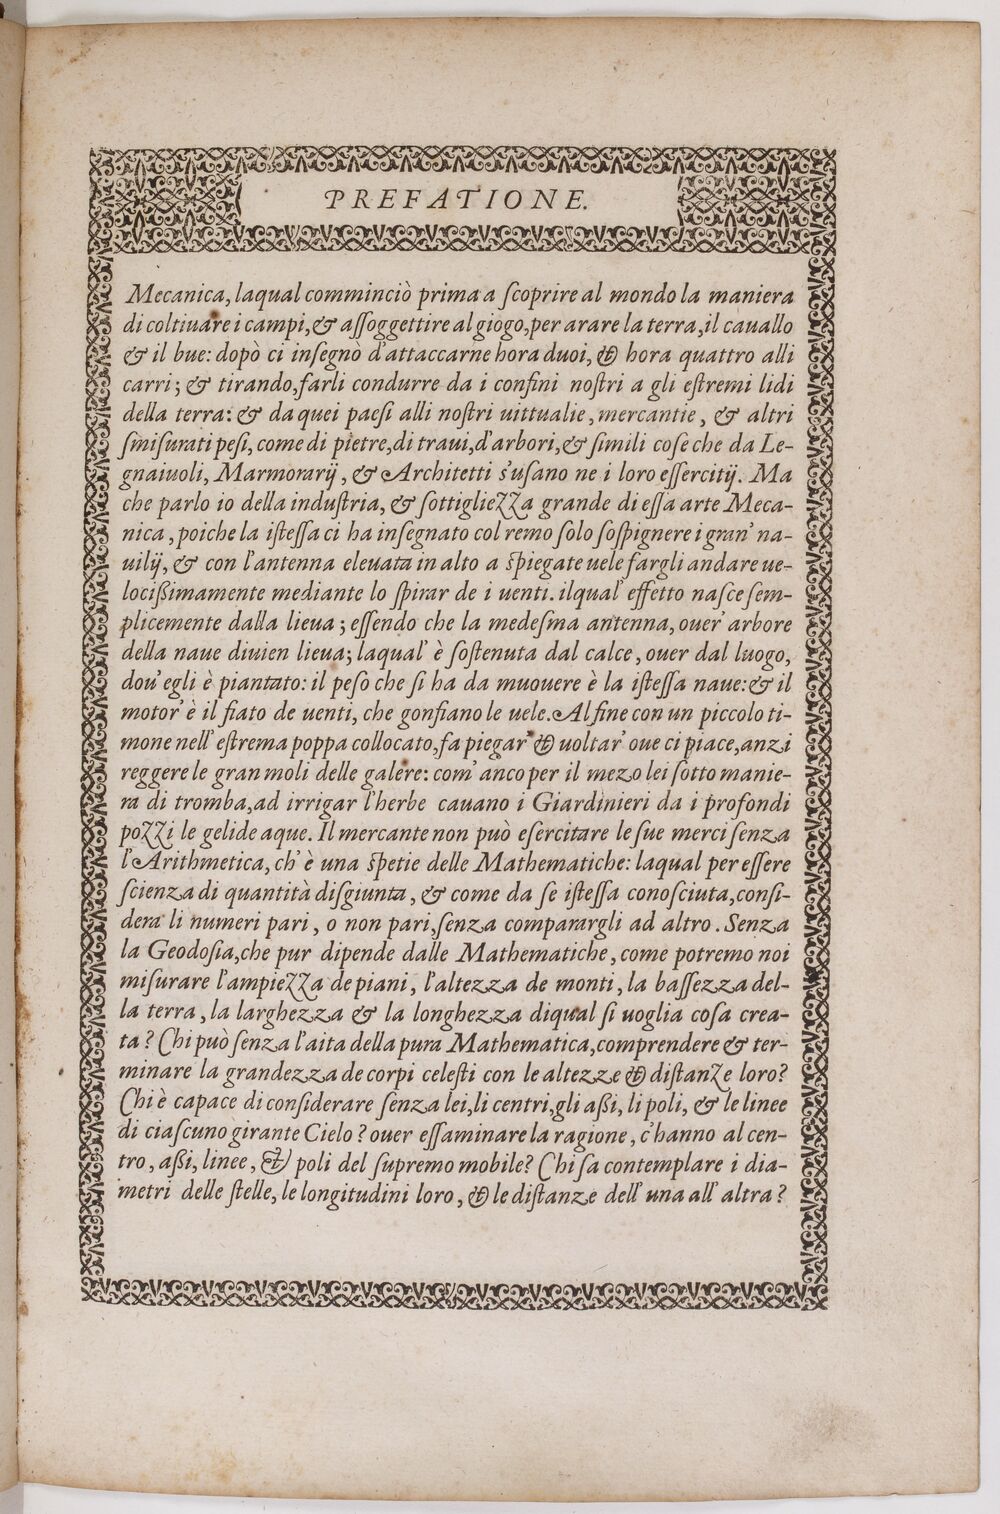 PREFATIONE.
Mecanica, laqual comminciò prima a ſcoprire al mondo la maniera
di coltiuare i campi, & aſſoggettire al giogo, per arare la terra, il cauallo
& il bue: dopò ci inſegnò d'attaccarne hora duoi, & hora quattro alli
carri; & tirando, farli condurre da i confini noſtri a gli eſtremi lidi
della terra: & da quei paeſi alli noſtri uittualie, mercantie, & altri
ſmiſurati peſi, come di pietre, di traui, d'arbori, & ſimili coſe che da Le-
gnaiuoli, Marmorarij, & Architetti s'uſano ne i loro eſſercitij. Ma
che parlo io della induſtria, & ſottigliezza grande di eſſa arte Meca-
nica, poiche la iſteſſa ci ha inſegnato col remo ſolo ſoſpignere i gran' na-
uilij, & con l'antenna eleuata in alto a ſpiegate uele fargli andare ue-
locißimamente mediante lo ſpirar de i uenti. ilqual' effetto naſce ſem-
plicemente dalla lieua; eſſendo che la medeſma antenna, ouer' arbore
della naue diuien lieua; laqual' è ſoſtenuta dal calce, ouer dal luogo,
dou' egli è piantato: il peſo che ſi ha da muouere è la iſteſſa naue: & il
motor' è il fiato de uenti, che gonfiano le uele. Al fine con un piccolo ti-
mone nell' eſtrema poppa collocato, fa piegar' & uoltar' oue ci piace, anzi
reggere le gran moli delle galere: com' anco per il mezo lei ſotto manie-
ra di tromba, ad irrigar l'herbe cauano i Giardinieri da i profondi
pozzi le gelide aque. Il mercante non può eſercitare le ſue merci ſenza
l'Arithmetica, ch' è una ſpetie delle Mathematiche: laqual per eſſere
ſcienza di quantità diſgiunta, & come da ſe iſteſſa conoſciuta, conſi-
dera li numeri pari, o non pari, ſenza comparargli ad altro. Senza
la Geodoſia, che pur dipende dalle Mathematiche, come potremo noi
miſurare l'ampiezza de piani, l'altezza de monti, la baſſezza del-
la terra, la larghezza & la longhezza diqual ſi uoglia coſa crea-
ta? Chi può ſenza l'aita della pura Mathematica, comprendere & ter-
minare la grandezza de corpi celeſti con le altezze & diſtanze loro?
Chi è capace di conſiderare ſenza lei, li centri, gli aßi, li poli, & le linee
di ciaſcuno girante Cielo? ouer eſſaminare la ragione, c'hanno al cen-
tro, aßi, linee, & poli del ſupremo mobile? Chi ſa contemplare i dia-
metri delle ſtelle, le longitudini loro, & le diſtanze dell' una all' altra?